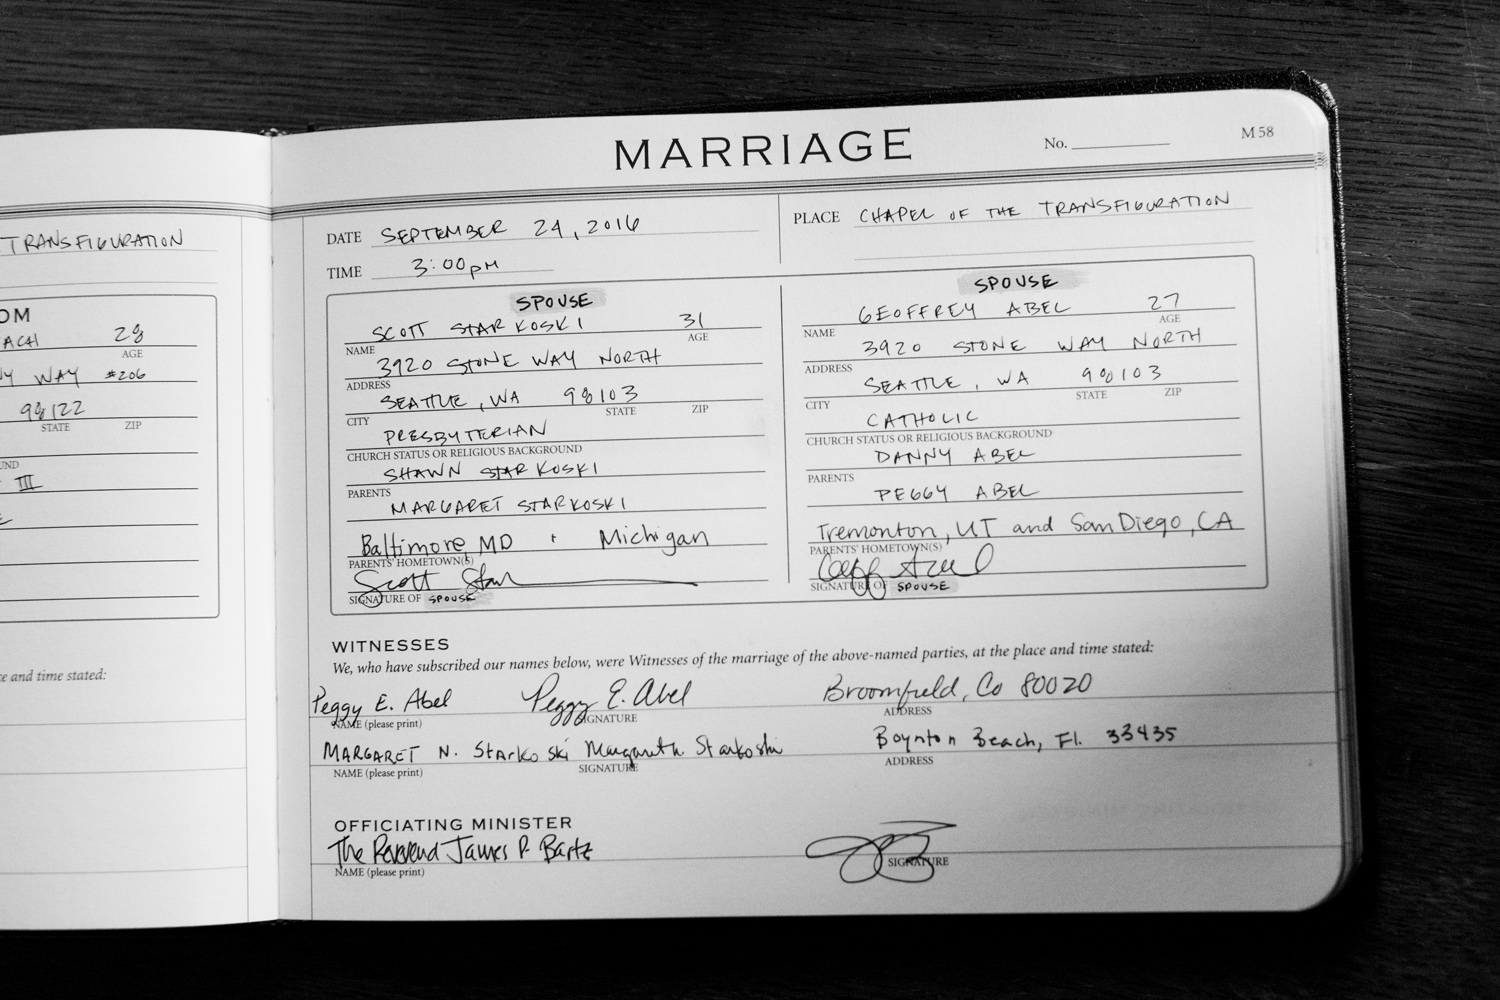 TRANSFIGURATION
OM
ACH 28
AGE
Y WAY #206
98122
STATE ZIP
UND
III
e and time stated:
MARRIAGE
No.
M 58
DATE SEPTEMBER 24, 2016
TIME 3:00PM
PLACE CHAPEL OF THE TRANSFIGURATION
SPOUSE
SCOTT STARKOSKI 31
NAME AGE
3920 STONE WAY NORTH
ADDRESS
SEATTLE, WA 98103
CITY STATE ZIP
PRESBYTERIAN
CHURCH STATUS OR RELIGIOUS BACKGROUND
SHAWN STARKOSKI
PARENTS
MARGARET STARKOSKI
Baltimore, MD + Michigan
PARENTS' HOMETOWN(S)
Scott Star
SIGNATURE OF SPOUSE
SPOUSE
GEOFFREY ABEL 27
NAME AGE
3920 STONE WAY NORTH
ADDRESS
SEATTLE, WA 98103
CITY STATE ZIP
CATHOLIC
CHURCH STATUS OR RELIGIOUS BACKGROUND
DANNY ABEL
PARENTS
PEGGY ABEL
Tremonton, UT and San Diego, CA
PARENTS' HOMETOWN(S)
SIGNATURE OF SPOUSE
WITNESSES
We, who have subscribed our names below, were Witnesses of the marriage of the above-named parties, at the place and time stated:
Peggy E. Abel Peggy E. Abel Broomfield, Co 80020
NAME (please print) SIGNATURE ADDRESS
MARGARET N. Starkoski Margaret N. Starkoski Boynton Beach, Fl. 33435
NAME (please print) SIGNATURE ADDRESS
OFFICIATING MINISTER
The Reverend James P. Bartz
NAME (please print) SIGNATURE